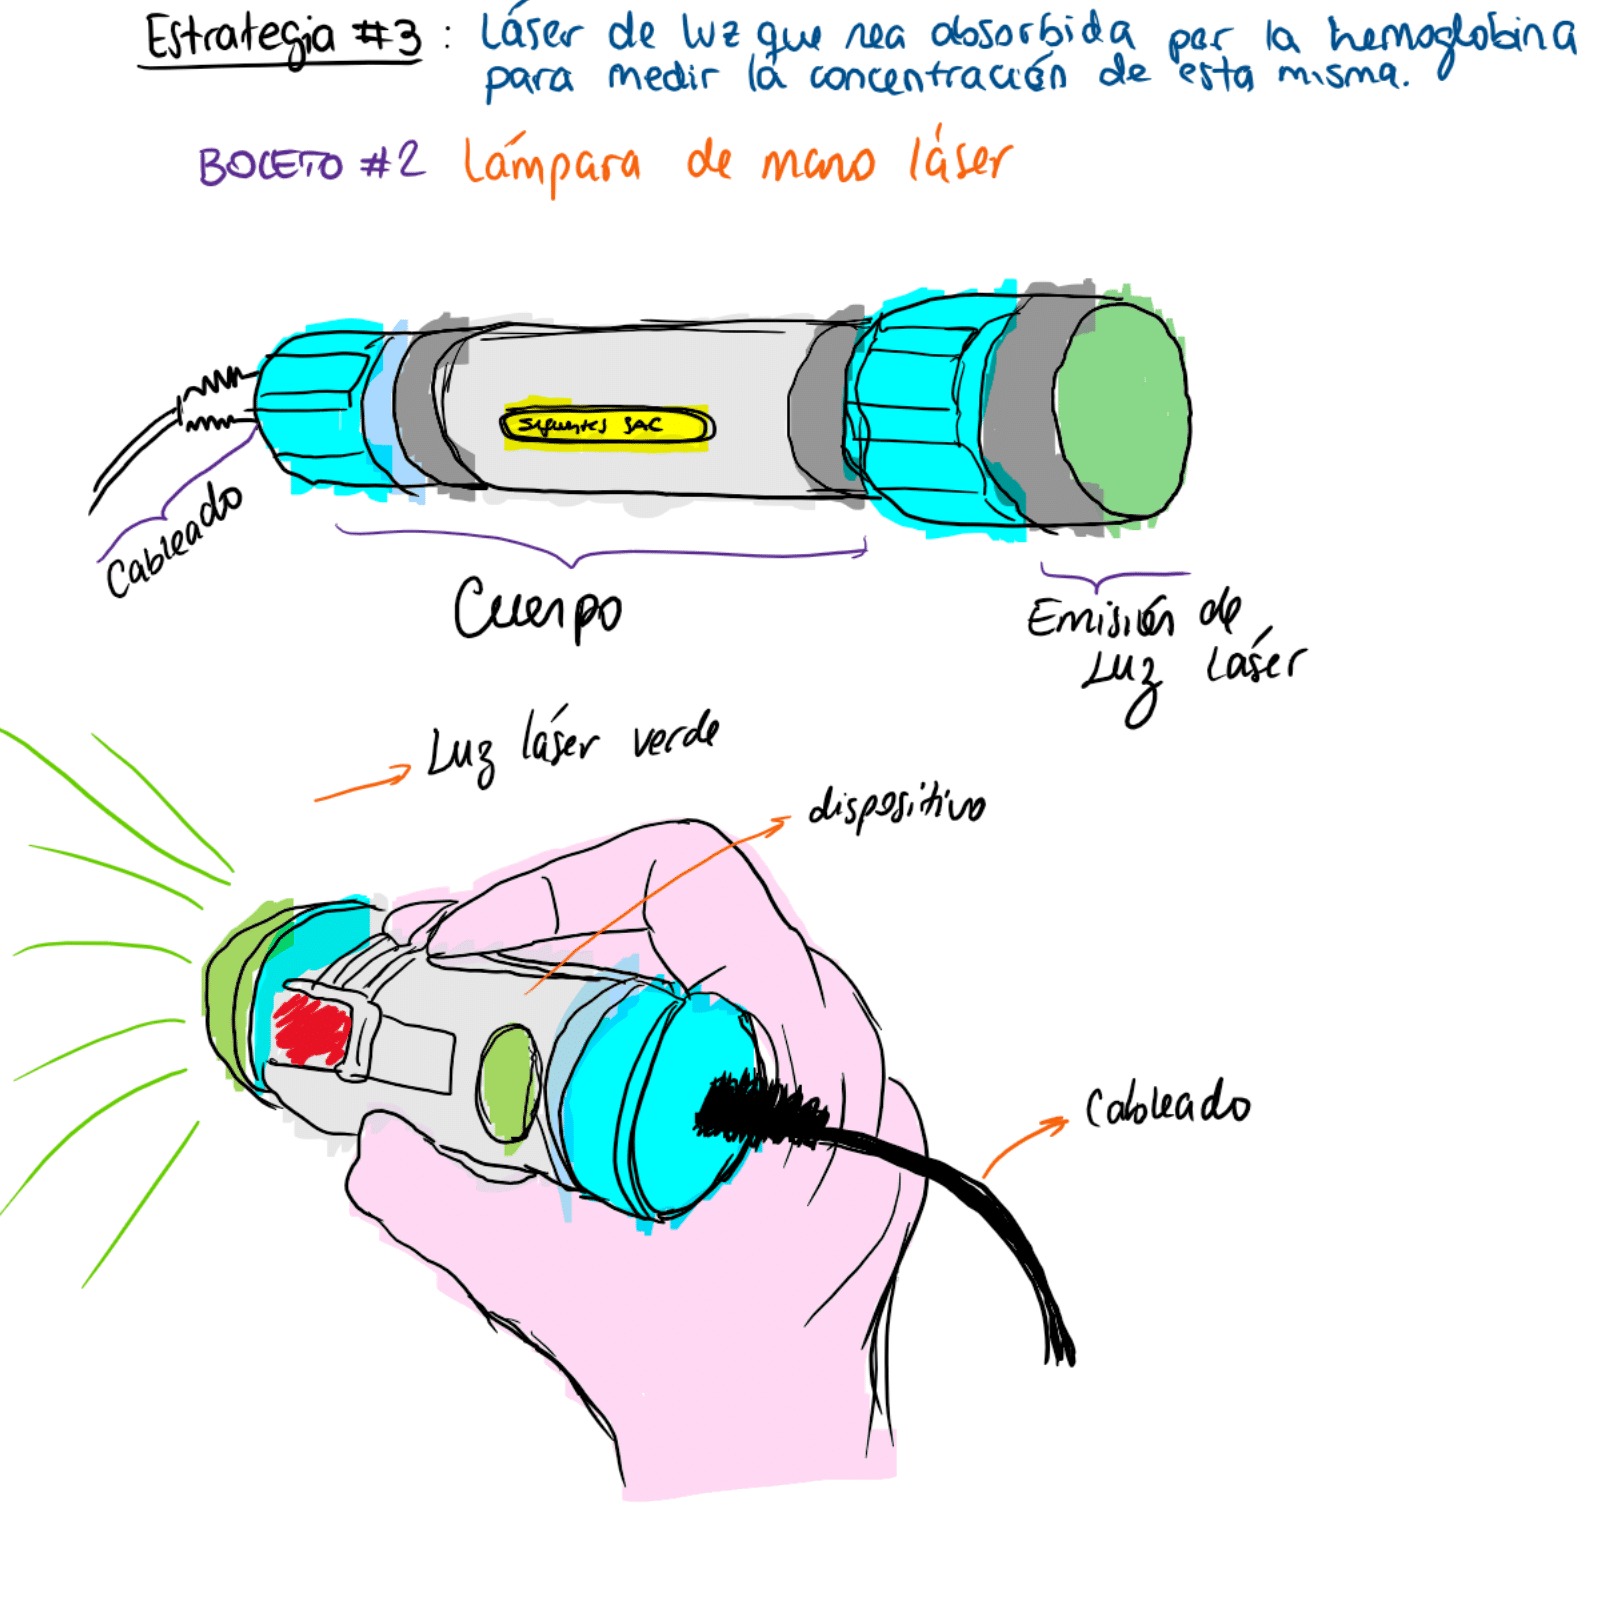 Estrategia #3 : Láser de luz que sea absorbida por la hemoglobina
para medir la concentración de esta misma.
BOCETO #2 Lámpara de mano láser
SAC
Cableado
Cuerpo
Emisión de
Luz láser
Luz láser verde
dispositivo
Cableado